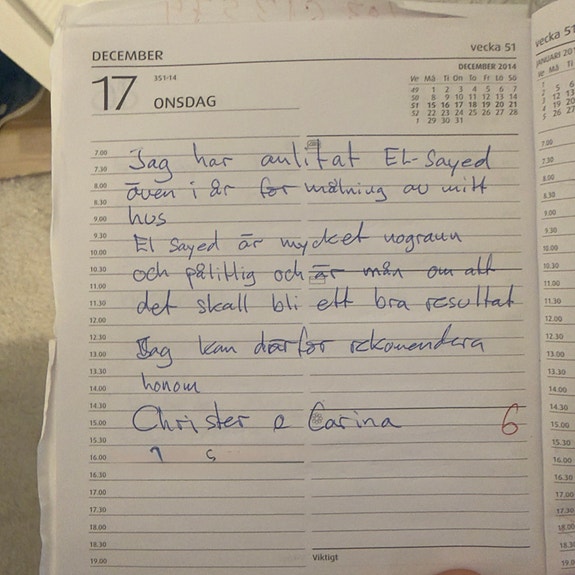 DECEMBER
vecka 51
17
351-14
ONSDAG
DECEMBER 2014
Ve Må Ti On To Fr Lö Sö
49 1 2 3 4 5 6 7
50 8 9 10 11 12 13 14
51 15 16 17 18 19 20 21
52 22 23 24 25 26 27 28
1 29 30 31
7.00
Jag har anlitat El-Sayed
7.30
8.00
även i år for målning av mitt
8.30
hus
9.00
9.30
El Sayed är mycket nograun
10.00
10.30
och pålitlig och är mån om att
11.00
11.30
det skall bli ett bra resultat
12.00
12.30
Jag kan därför rekomendera
13.00
13.30
honom
14.00
14.30
Christer o Carina 6
15.00
15.30
16.00
16.30
17.00
17.30
18.00
18.30
19.00
Viktigt
vecka 51
JANUARI 201
Ve Må Ti
7.00
7.30
8.00
8.30
9.00
9.30
10.00
10.30
11.00
11.30
12.00
12.30
13.00
13.30
14.00
14.30
15.00
15.30
16.00
16.30
17.00
17.30
18.00
18.30
19.0